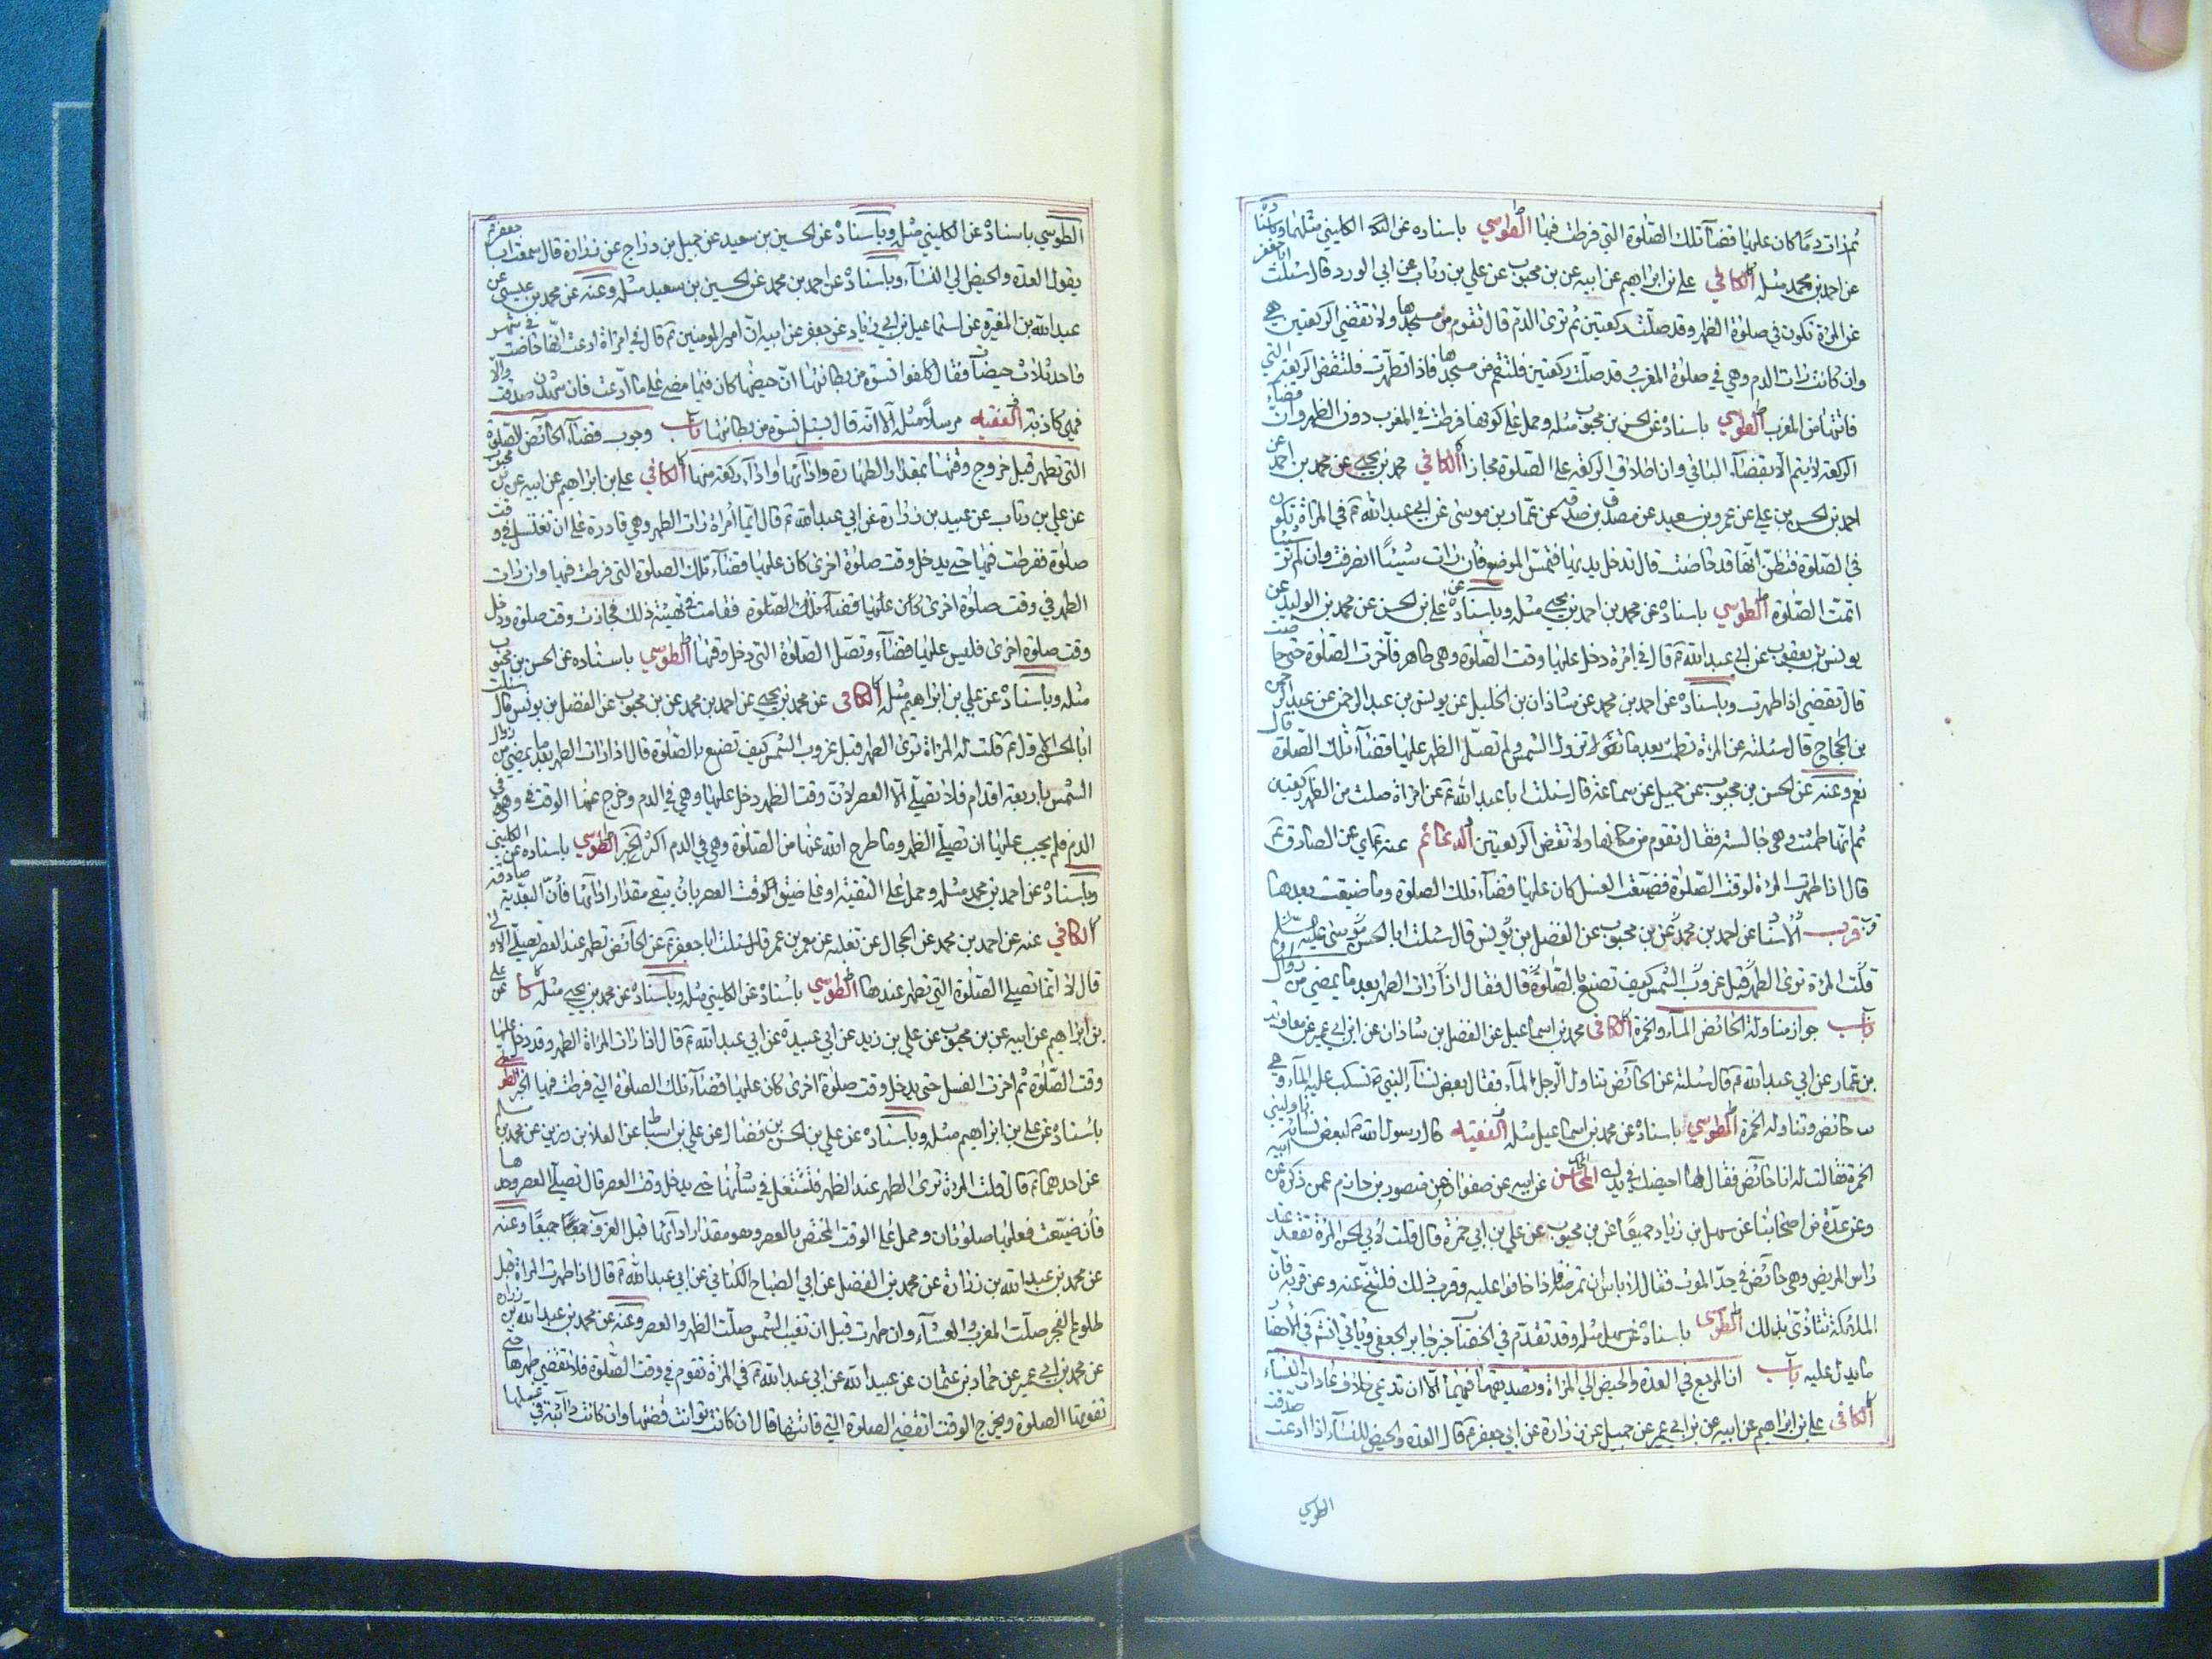 ثم رات دما كان عليها قضاء تلك الصلوة التي فرطت فيها الطوسي باسناده عن الكليني مثلهما وباسناده
عن احمد بن محمد مثله الكافي علي بن ابراهيم عن ابيه عن بن محبوب عن علي بن رئاب عن ابي الورد قال سئلت ابا جعفر
عن المرئة تكون في صلوة الظهر وقد صلت ركعتين ثم ترى الدم قال تقوم من مسجدها ولا تقضي الركعتين
وان كانت رات الدم وهي في صلوة المغرب وقد صلت ركعتين فلتقم من مسجدها فاذا تطهرت فلتقض الركعة التي
فاتتها من المغرب الطوسي باسناده عن الحسن بن محبوب مثله وحمل على كونها فرطت في المغرب دون الظهر وان قضاء
الركعة لا يتم الا بقضاء الباقي وان اطلاق الركعة على الصلوة مجازا الكافي محمد بن يحيى عن محمد بن احمد عن
احمد بن الحسن بن علي عن عمرو بن سعيد عن مصدق بن صدقة عن عمار بن موسى عن ابي عبد الله ع في المراة تكون
في الصلوة فتظن انها قد حاضت قال تدخل يديها فتمس الموضع فان رات شيئا انصرفت وان لم تر شيئا
اتمت الصلوة الطوسي باسناده عن محمد بن احمد بن يحيى مثله وباسناده عن علي بن الحسن عن محمد بن الوليد عن
يونس بن يعقوب عن ابي عبد الله ع قال في امرئة دخل عليها وقت الصلوة وهي طاهر فاخرت الصلوة حتى حاضت
قال تقضي اذا طهرت وباسناده عن احمد بن محمد عن شاذان بن الخليل عن يونس بن عبد الرحمن عن عبد الرحمن
بن الحجاج قال سئلته عن المراة تطمث بعد ما تزول الشمس ولم تصل الظهر عليها قضاء تلك الصلوة قال
نعم وعنه عن الحسن بن محبوب عن جميل عن سماعة قال سئلت ابا عبد الله ع عن امراة صلت من الظهر ركعتين
ثم انها طمثت وهي جالسة فقال تقوم من مكانها ولا تقض الركعتين الدعائم عنه عن الصادق ع
قال اذا طهرت المراة لوقت الصلوة فضيعت الغسل كان عليها قضاء تلك الصلوة وما ضيعت بعدها
قرب الاسناد عن احمد بن محمد عن بن محبوب عن الفضل بن يونس قال سئلت ابا الحسن موسى عليه السلم
قلت المراة ترى الطهر قبل غروب الشمس كيف تصنع بالصلوة قال فقال اذا رات الطهر بعد ما يمضي من زوال
باب جواز مناولة الحائض الماء والخمرة الكافي محمد بن اسماعيل عن الفضل بن شاذان عن ابن ابي عمير عن معاوية
بن عمار عن ابي عبد الله ع قال سئلته عن الحائض تناول الرجل الماء فقال بعض نساء النبي ص تسكب عليه الماء وهي
حائض وتناوله الخمرة الطوسي باسناده عن محمد بن اسماعيل مثله الفقيه كان رسول الله ص لبعض نسائه ناوليني
الخمرة فقالت له انا حائض فقال لها احيضك في يدك المحاسن عن ابيه عن صفوان عن منصور بن حازم عمن ذكره عن
وعن عدة من اصحابنا عن سهل بن زياد جميعا عن بن محبوب عن علي بن ابي حمزة قال قلت لابي الحسن المرئة تقعد عند
راس المريض وهي حائض في حد الموت فقال لا باس ان تمرضه فاذا خافوا عليه وقرب ذلك فلتنح عنه وعن قربه فان
الملائكة تتاذى بذلك الطوسي باسناده عن سهل مثله وقد تقدم في الخضاب خبر جابر الجعفي وياتي انشم في الاحتضار
ما يدل عليه باب ان المرجع في العدة والحيض الى المراة وتصديقهما فيهما الا ان تدعي خلاف عادات النساء
الكافي علي بن ابراهيم عن ابيه عن بن ابي عمير عن جميل عن زرارة عن ابي جعفر ع قال العدة والحيض للنساء اذا ادعت صدقت
الطوسي
الطوسي باسناده عن الكليني مثله وباسناده عن الحسين بن سعيد عن جميل بن دراج عن زرارة قال سمعت ابا جعفر ع
يقول العدة والحيض الى النساء وباسناده عن احمد بن محمد عن الحسين بن سعيد مثله وعنه عن محمد بن عيسى عن
عبد الله بن المغيرة عن اسماعيل بن ابي زياد عن جعفر عن ابيه ان امير المومنين ع قال في امراة ادعت انها حاضت في شهر
واحد ثلاث حيض فقال كلفوا نسوة من بطانتها ان حيضها كان فيما مضى على ما ادعت فان شهدن صدقت والا
فهي كاذبة الفقيه مرسلا مثله الا انه قال يسئل نسوة من بطانتها باب وجوب قضاء الحائض الصلوة
التي تطهر قبل خروج وقتها بمقدار الطهارة واداءها واداء ركعة منها الكافي علي بن ابراهيم عن ابيه عن بن محبوب
عن علي بن رئاب عن عبيد بن زرارة عن ابي عبد الله ع قال ايما امراة رات الطهر وهي قادرة على ان تغتسل في وقت
صلوة ففرطت فيها حتى يدخل وقت صلوة اخرى كان عليها قضاء تلك الصلوة التي فرطت فيها وان رات
الطهر في وقت صلوة اخرى كان عليها قضاء تلك الصلوة فقامت في تهيئة ذلك فجازت وقت صلوة ودخل
وقت صلوة اخرى فليس عليها قضاء وتصل الصلوة التي دخل وقتها الطوسي باسناده عن الحسن بن محبوب
مثله وباسناده عن علي بن ابراهيم مثله الكافي عن محمد بن يحيى عن احمد بن محمد عن بن محبوب عن الفضل بن يونس قال سئلت
ابا الحسن الاول ع قلت له المراة ترى الطهر قبل غروب الشمس كيف تصنع بالصلوة قال اذا رات الطهر بعد ما يمضي من زوال
الشمس باربعة اقدام فلا تصلي الا العصر لان وقت الظهر دخل عليها وهي في الدم وخرج عنها الوقت وهي في
الدم فلم يجب عليها ان تصلي الظهر وما طرح الله عنها من الصلوة وهي في الدم اكثر الخبر الطوسي باسناده عن الكليني
وباسناده عن احمد بن محمد مثله وحمل على التقية او على ضيق الوقت العصر بان يبقى مقدار اداءها
الكافي عنه عن احمد بن محمد عن الحجال عن ثعلبة عن معمر بن عمر قال سئلت ابا جعفر ع عن الحائض تطهر عند العصر تصلي الاولى
قال لا انما تصلي الصلوة التي تطهر عندها الطوسي باسناده عن الكليني مثله وباسناده عن محمد بن يحيى مثله كا عن علي
بن ابراهيم عن ابيه عن بن محبوب عن علي بن زيد عن ابي عبيدة عن ابي عبد الله ع قال اذا رات المراة الطهر وقد دخل عليها
وقت الصلوة ثم اخرت الغسل حتى يدخل وقت صلوة اخرى كان عليها قضاء تلك الصلوة التي فرطت فيها الخبر الطوسي
باسناده عن علي بن ابراهيم مثله وباسناده عن علي بن الحسن بن فضال عن علي بن اسباط عن العلا بن رزين عن محمد بن مسلم
عن احدهما ع قال قلت المرئة ترى الطهر عند الظهر فتشتغل في شانها حتى يدخل وقت العصر قال تصلي العصر وحدها
فان ضيعت فعليها صلوتان وحمل على الوقت المختص بالعصر وهو مقدار اداءها قبل الغروب جمعا وعنه
عن محمد بن عبد الله بن زرارة عن محمد بن الفضيل عن ابي الصباح الكناني عن ابي عبد الله ع قال اذا طهرت المراة قبل
طلوع الفجر صلت المغرب والعشاء وان طهرت قبل ان تغيب الشمس صلت الظهر والعصر وعنه عن محمد بن عبد الله بن زرارة
عن محمد بن ابي عمير عن حماد بن عثمان عن عبيد الله عن ابي عبد الله ع في المرئة تقوم في وقت الصلوة فلا تقضي طهرها حتى
تفوتها الصلوة ويخرج الوقت اتقضي الصلوة التي فاتتها قال ان كانت توانت قضتها وان كانت دائبة في غسلها